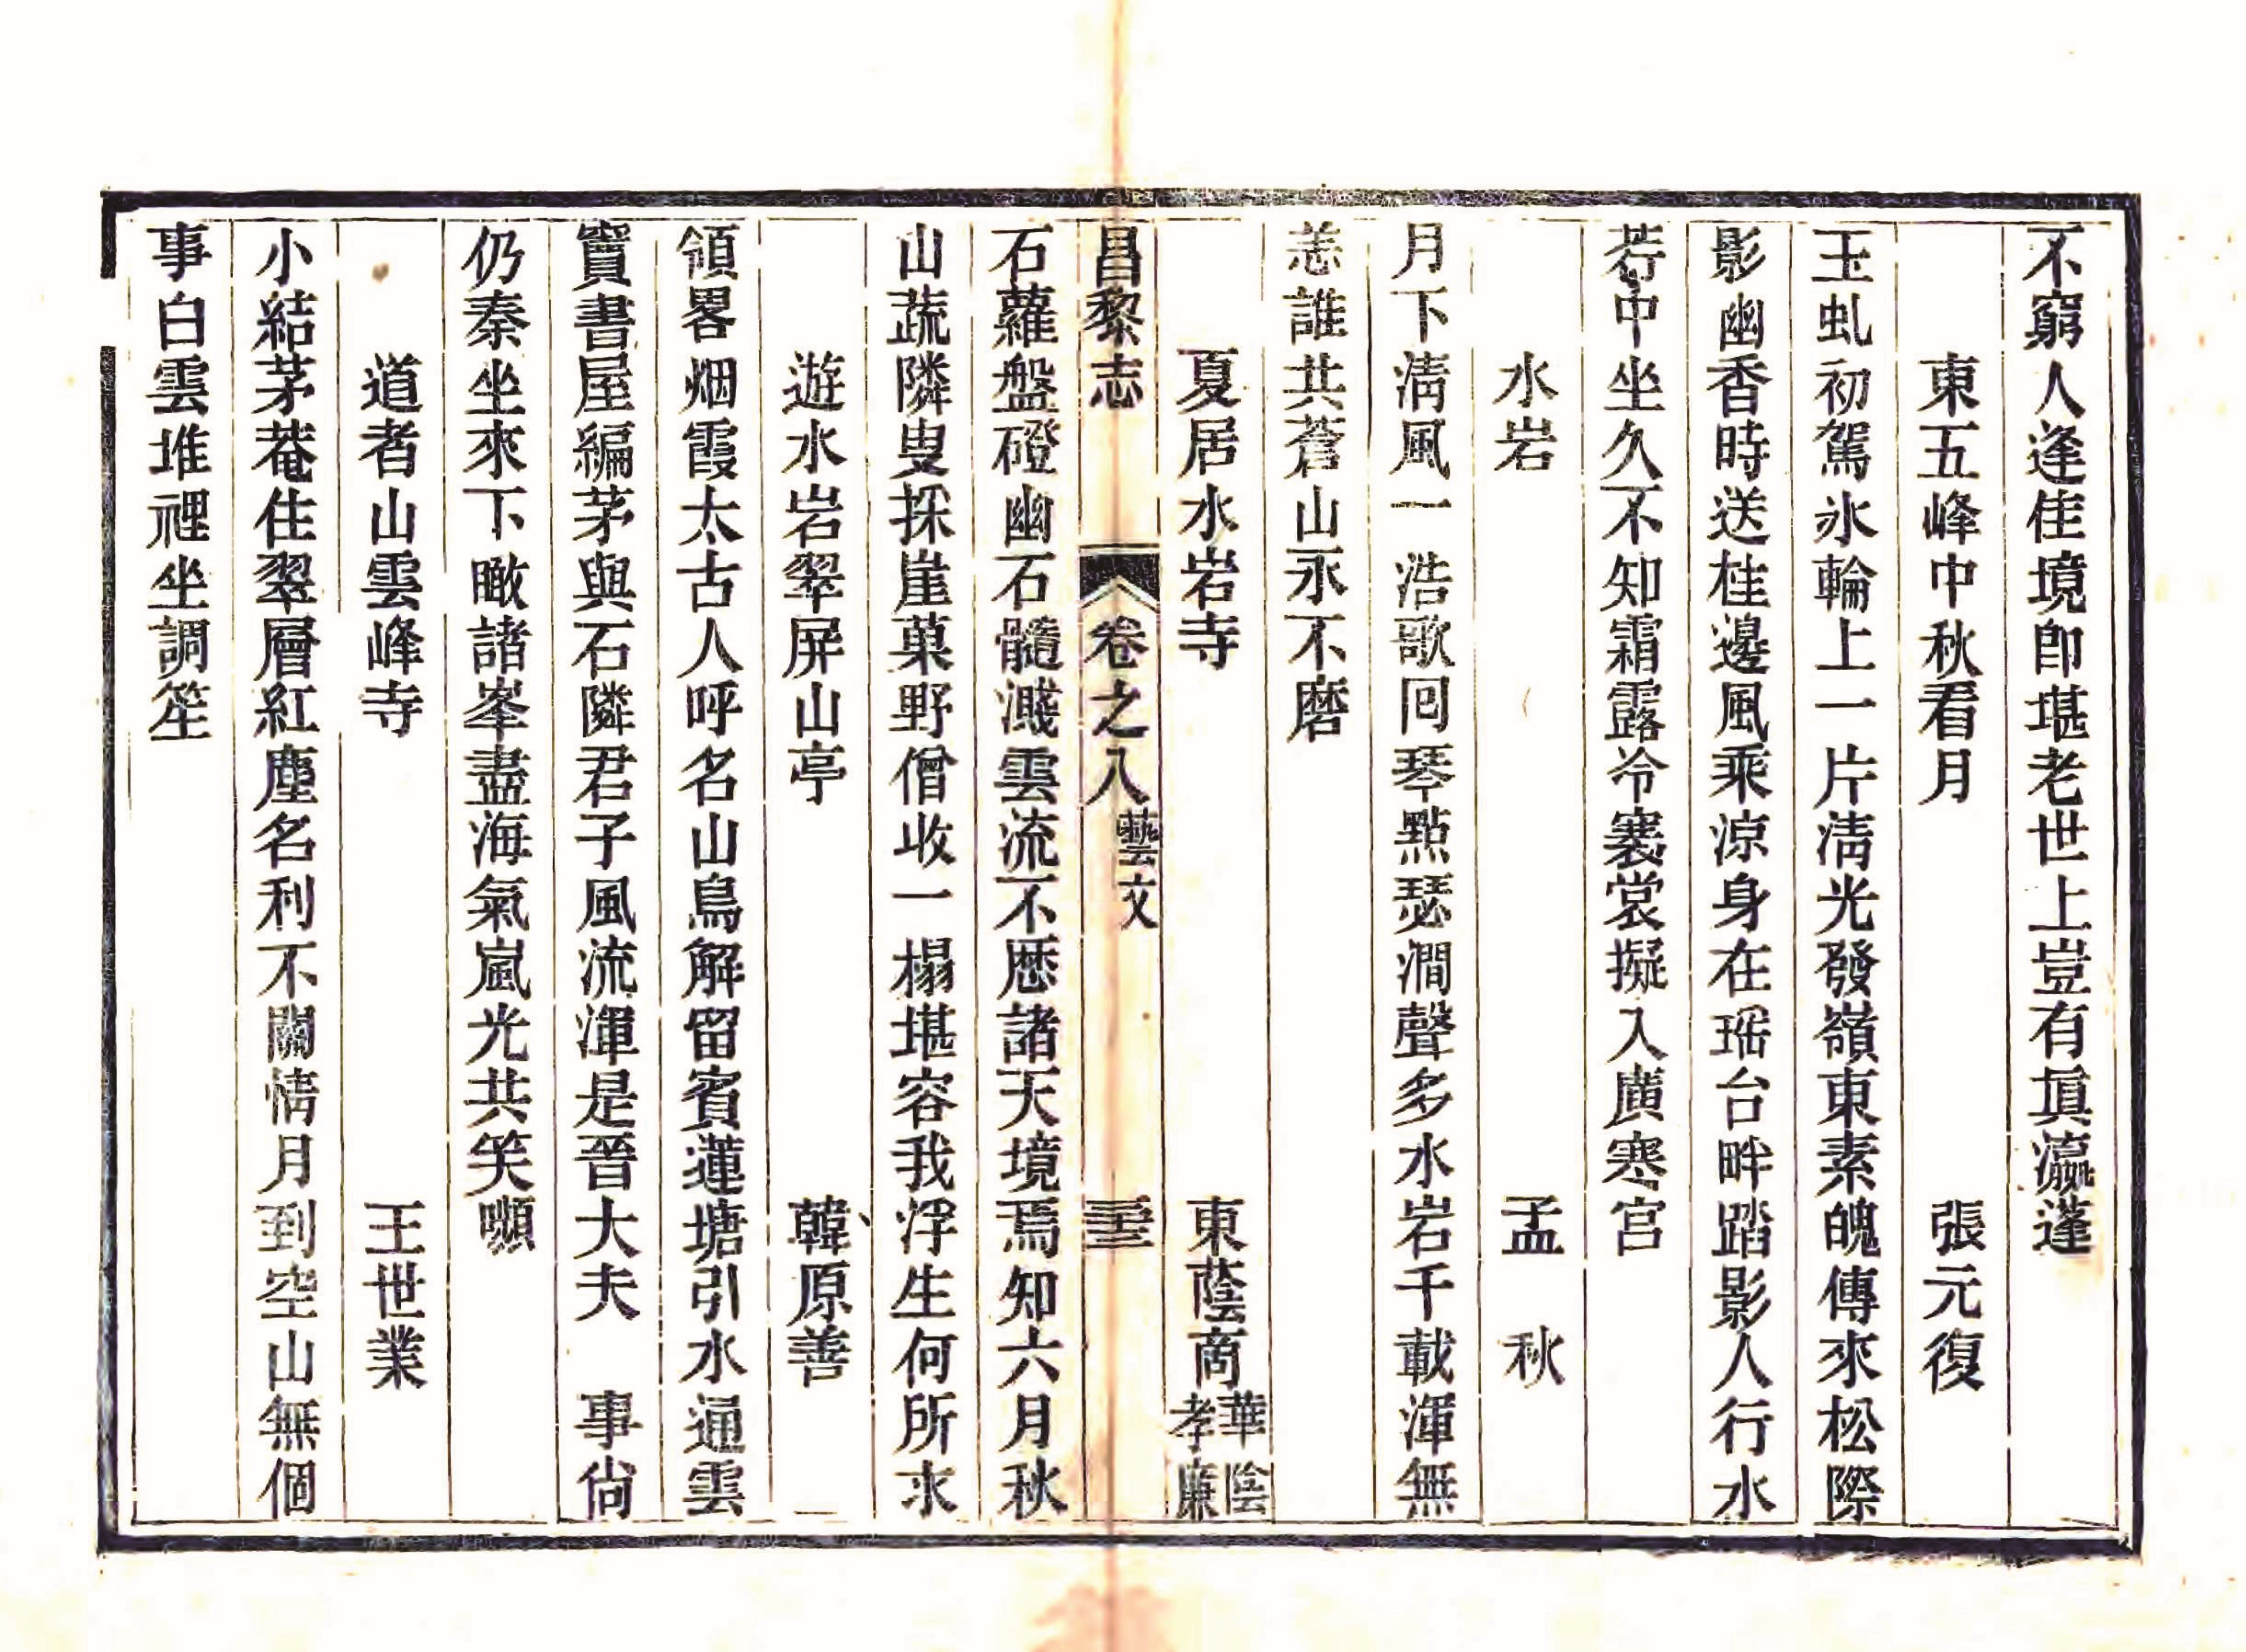 不窮人逢佳境卽堪老世上豈有眞瀛蓬
東五峰中秋看月　張元復
玉虬初駕氷輪上一片淸光發嶺東素魄傳來松際
影幽香時送桂邊風乘涼身在瑶台畔踏影人行水
荇中坐久不知霜露冷褰裳擬入廣寒宮
水岩　孟　秋
月下淸風一浩歌囘琴點瑟澗聲多水岩千載渾無
恙誰共蒼山永不磨
夏居水岩寺　東蔭商華陰孝廉
昌黎志　卷之八藝文　三十三
石蘿盤磴幽石髓濺雲流不歷諸天境焉知六月秋
山蔬隣叟採崖菓野僧收一榻堪容我浮生何所求
遊水岩翠屏山亭　韓原善
領畧烟霞太古人呼名山鳥解留賓蓮塘引水通雲
竇書屋編茅與石隣君子風流渾是晉大夫　事尙
仍秦坐來下瞰諸峯盡海氣嵐光共笑嚬
道者山雲峰寺　王世業
小結茅菴住翠層紅塵名利不關情月到空山無個
事白雲堆裡坐調笙